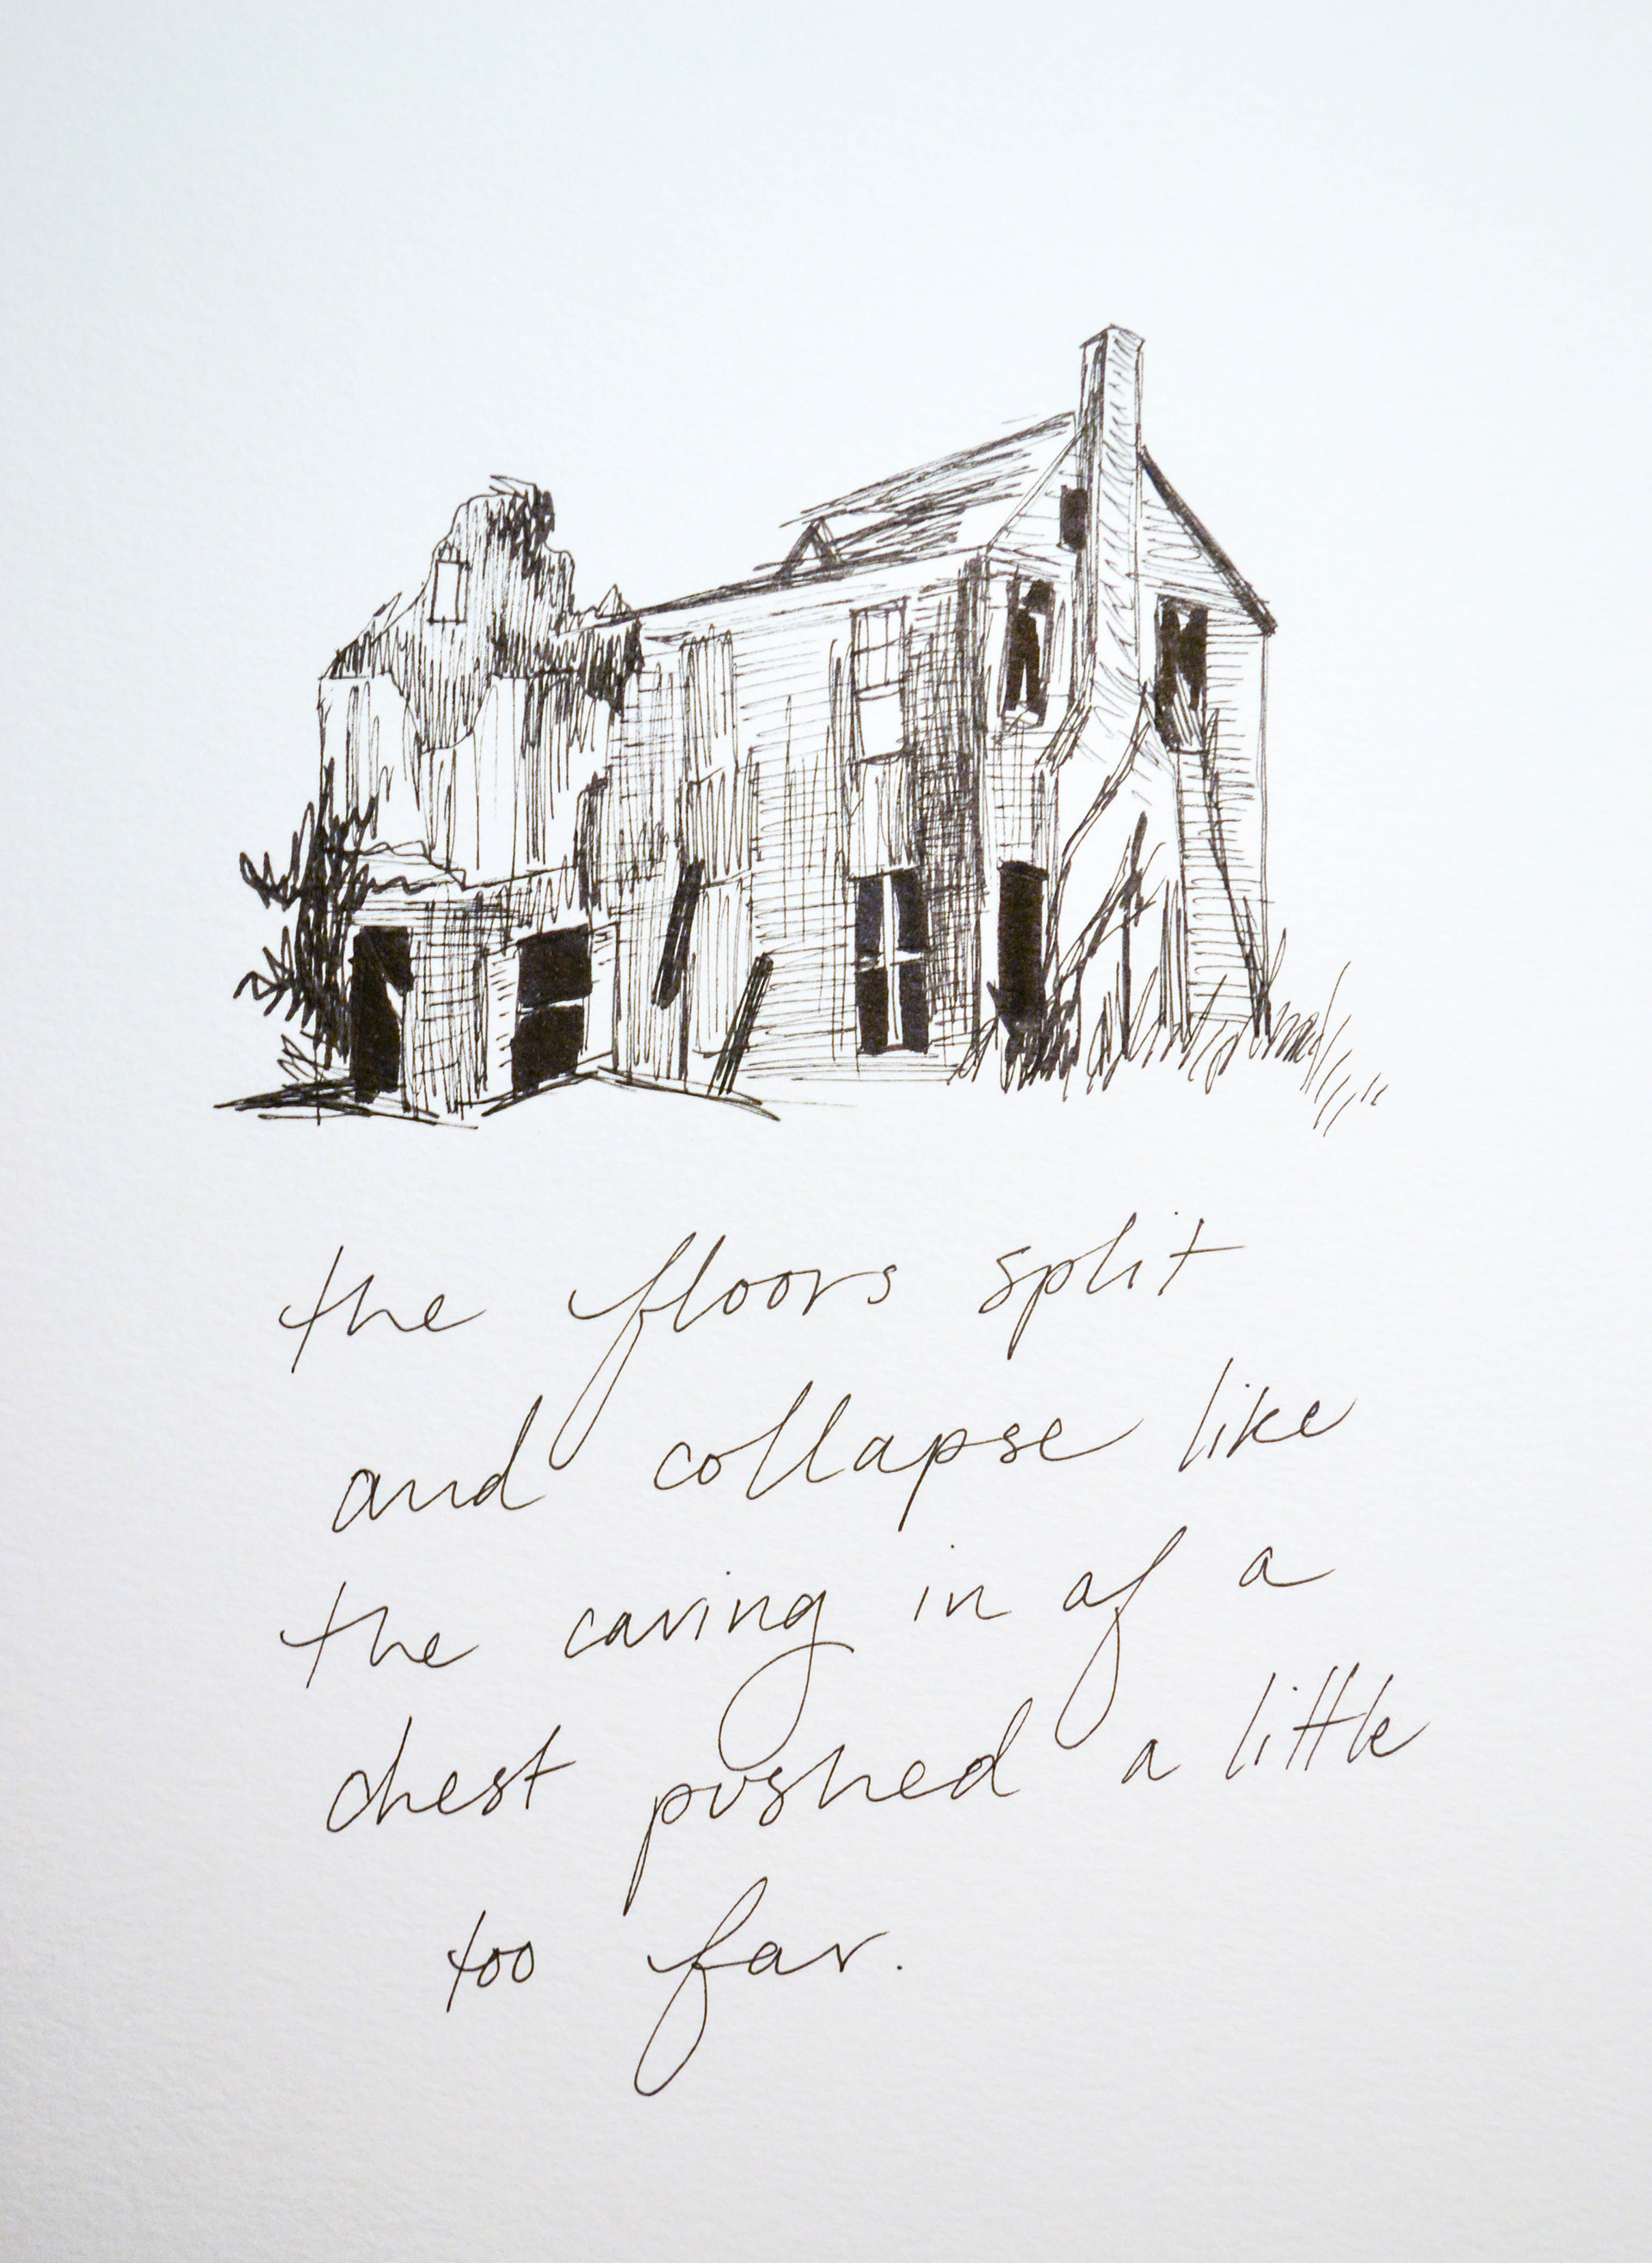 the floors split
and collapse like
the caving in of a
chest pushed a little
too far.